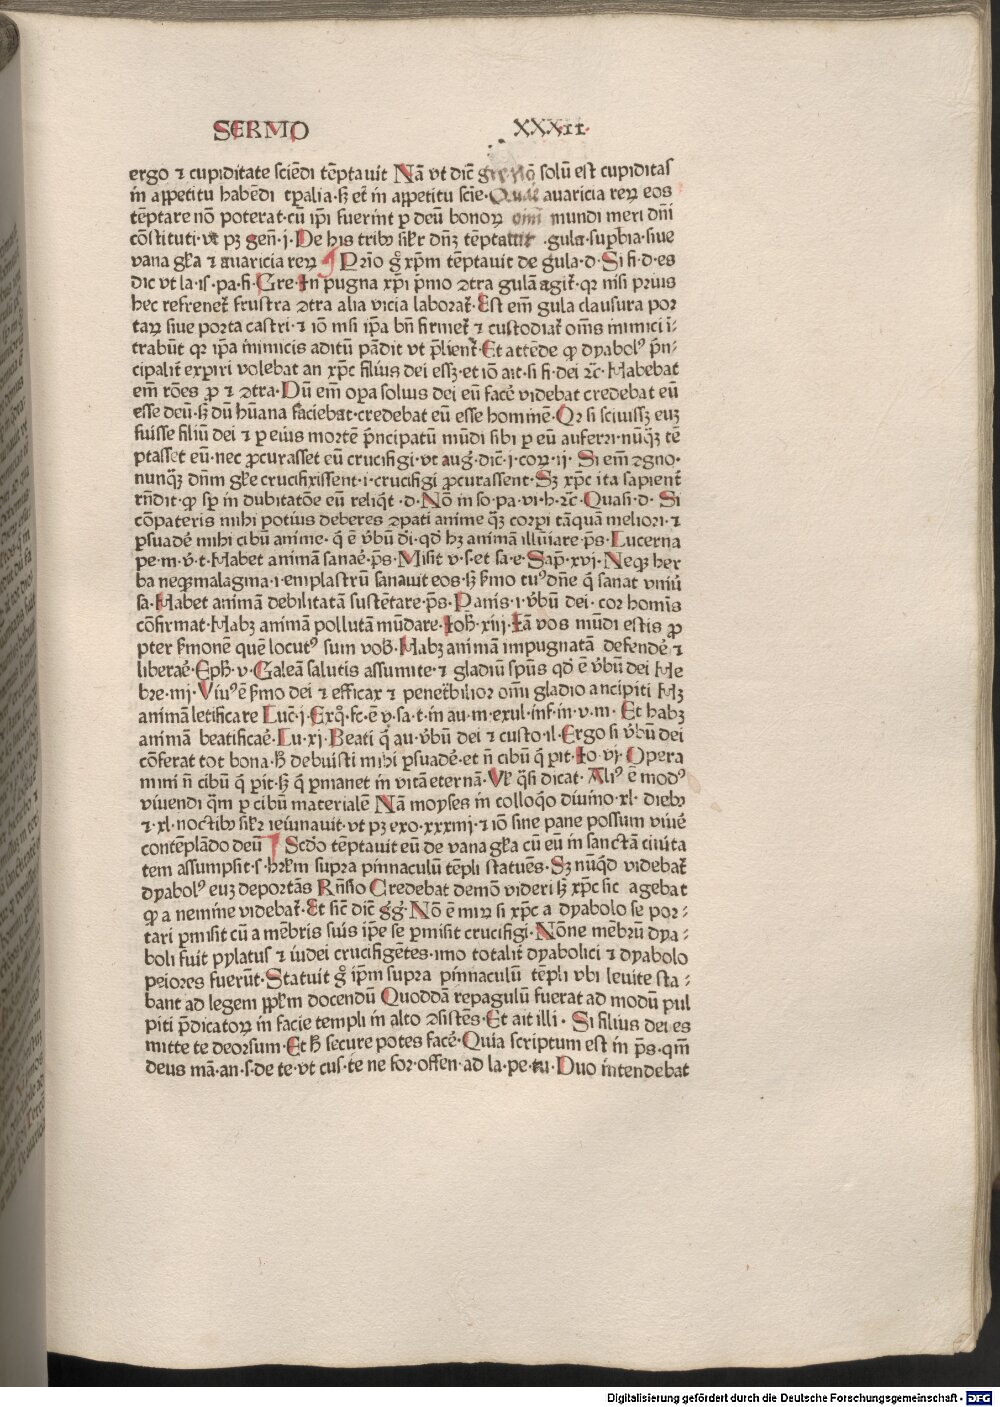 SERMO XXXII.
ergo ⁊ cupiditate sciēdi tēptauit Nā vt dic̄ nō solū est cupiditas
in appetitu habēdi tꝑalia·sꝫ et̄ in appetitu scīe· auaricia reꝝ eos
tēptare nō poterat·cū ip̄i fuerint ꝑ deū bonoꝝ mundi meri dn̄i
cōstituti·vt pꝫ gen̄·j·De his tribꝰ silꝛ dn̄ꝫ tēptauit ·gula·suꝑbia·siue
vana gl̄ia ⁊ auaricia reꝝ ¶ Prīo gͦ xp̄m tēptauit de gula·d·Si fi·d·es
dic vt la·is·pa·fi·Gre·In pugna xp̄i p̄mo ꝯtra gulā agit᷑·qꝛ nisi prius
hec refrenet᷑ frustra ꝯtra alia vicia laborat᷑·Est em̄ gula clausura por
taꝝ siue porta castri·⁊ iō nisi ip̄a bn̄ firmet᷑ ⁊ custodiat᷑ om̄s inimici ī-
trabūt qꝛ ip̄a inimicis aditū pādit vt p̄lient᷑·Et attēde ꝙ dyabolꝰ p̄n-
cipalit᷑ exꝑiri volebat an xp̄c filius dei essꝫ·et iō ait·si fi·dei ⁊c̄·Habebat
em̄ rōes ꝓ ⁊ ꝯtra·Dū em̄ oꝑa solius dei eū facē videbat credebat eū
esse deū·sꝫ dū hūana faciebat·credebat eū esse hominē·Qꝛ si sciuissꝫ euꝫ
fuisse filiū dei ⁊ ꝑ eius mortē p̄ncipatū mūdi sibi ꝑ eū auferri·nūqꝫ tē
ptasset eū·nec ꝓcurasset eū crucifigi·vt aug᷑·dic̄·j·coꝝ·ij· Si em̄ ꝯgno·
nunqꝫ dn̄m gl̄ie crucifixissent·i·crucifigi ꝓcurassent·Sꝫ xp̄c ita sapient᷑
rn̄dit·ꝙ sp̄ in dubitatōe eū reliq̄t·d·Nō in so·pa·vi·h·⁊c̄·Quasi·d· Si
cōpateris mihi potius deberes ꝯpati anime qꝫ corpi tāquā meliori·⁊
ꝑsuadē mihi cibū anime·q̄ ē v̄bū dī·qd̄ hꝫ animā illuīare·p̄s·Lucerna
pe·m·v̄·t·Habet animā sanaē·p̄s·Misit v·s·et sa·e·Sap̄·xvj·Neqꝫ her
ba neqꝫmalagma·i·emplastrū sanauit eos·sꝫ s̄mo tuꝰdn̄e q̄ sanat vniū
sa·Habet animā debilitatā sustētare·p̄s·Panis·i·v̄bū dei·cor homis
cōfirmat·Habꝫ animā pollutā mūdare·Joh̄·xiij·Iā vos mūdi estis ꝓ
pter s̄monē quē locutꝰ sum vob̄·Habꝫ animā impugnatā defendē ⁊
liberaē·Eph̄·v·Galeā salutis assumite·⁊ gladiū sp̄us qd̄ ē v̄bū dei He
bre·iiij·Viuꝰē s̄mo dei ⁊ efficax ⁊ penet᷑bilior om̄i gladio ancipiti Hꝫ
animā letificare Luc̄·j·Exqͦ·fc·ē v·sa·t·in au·m·exul·inf·in·v·m· Et habꝫ
animā beatificaē·Lu·xj·Beati q̄ au·v̄bū dei ⁊ custo·il·Ergo si v̄bū dei
cōferat tot bona·h̄ debuisti mihi ꝑsuadē·et n̄ cibū q̄ ꝑit·Jo·vj·Opera
mini n̄ cibū q̄ ꝑit·sꝫ q̄ ꝑmanet in vitā eternā·Vl̄ q̄si dicat·Aliꝰ ē modꝰ
viuendi qm̄ ꝑ cibū materialē Nā moyses in colloq̄o diuino·xl·diebꝰ
⁊·xl·noctibꝰ silꝛ ieiunauit·vt pꝫ exo·xxxiiij·⁊ iō sine pane possum viuē
contēplādo deū ¶ Scd̄o tēptauit eū de vana gl̄ia cū eū in sanctā ciuita
tem assumpsit·s·hrl̄m supra pinnaculū tēpli statuēs·Sꝫ nūqd̄ videbat᷑
dyabolꝰ euꝫ deportās Rn̄sio Credebat demō videri sꝫ xp̄c sic agebat
ꝙ a nemine videbat᷑·Et sic̄ dic̄ gͦgͦ·Nō ē miꝝ si xp̄c a dyabolo se por-
tari ꝑmisit cū a mēbris suis ip̄e se ꝑmisit crucifigi·Nōne mēbrū dya-
boli fuit pylatus ⁊ iudei crucifigētes·imo totalit᷑ dyabolici ⁊ dyabolo
peiores fuerūt·Statuit gͦ ip̄m supra pinnaculū tēpli vbi leuite sta-
bant ad legem pp̄lm docendū Quoddā repagulū fuerat ad modū pul
piti p̄dicatoꝝ in facie templi in alto ꝯsistēs·Et ait illi· Si filius dei es
mitte te deorsum·Et h̄ secure potes facē·Quia scriptum est in p̄s·qm̄
deus mā·an·s·de te·vt cus·te ne for·offen·ad la·pe·tu·Duo intendebat
Digitalisierung gefördert durch die Deutsche Forschungsgemeinschaft - DFG